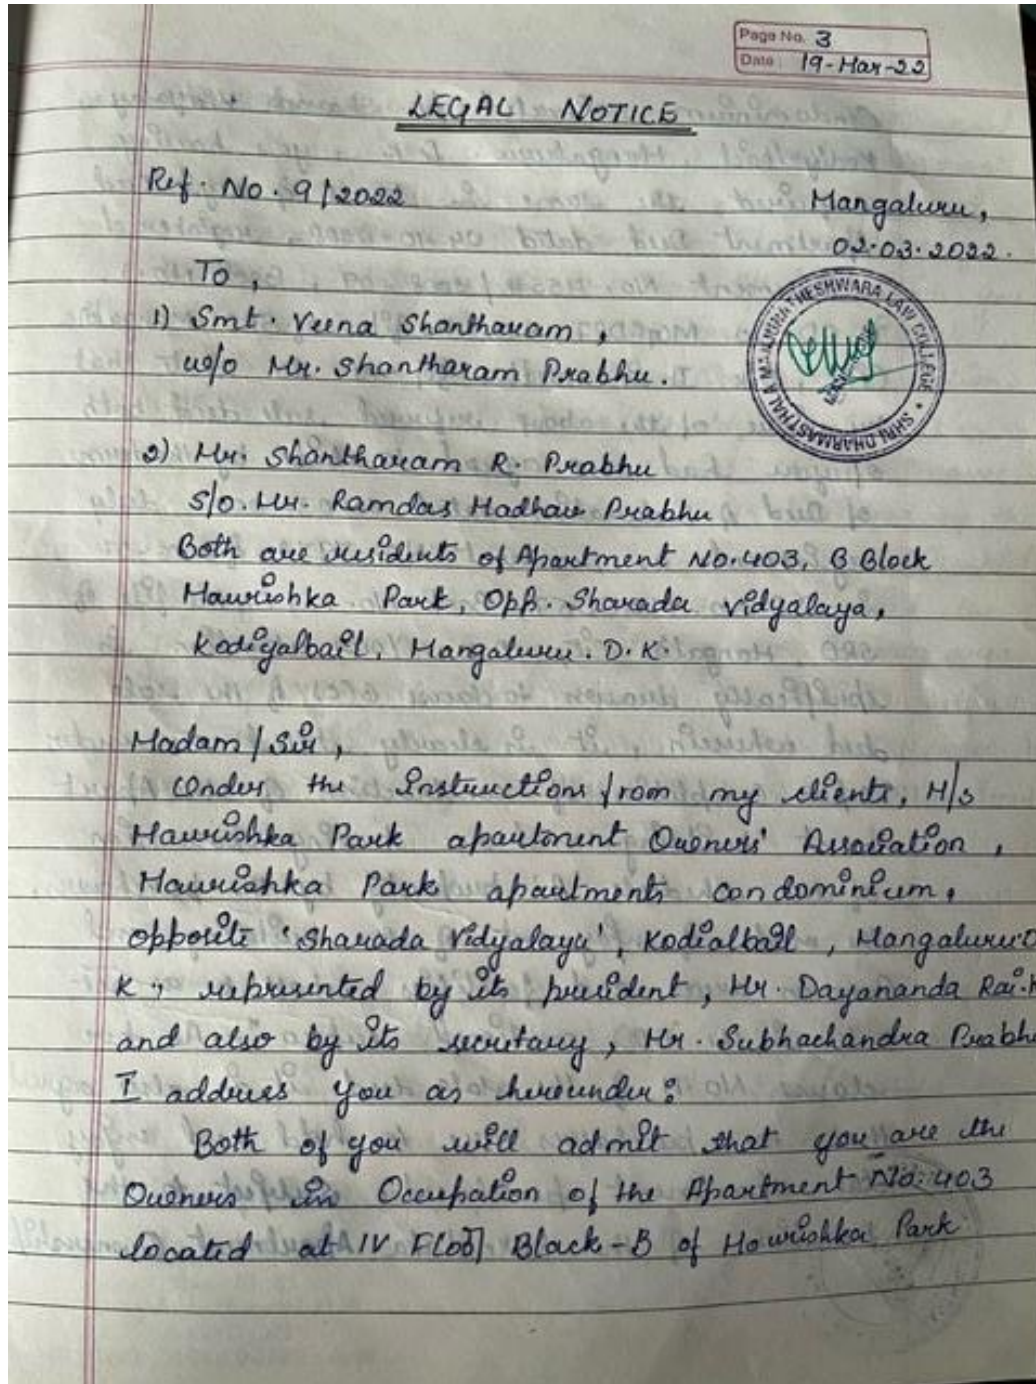 Page No. 3
Date: 19-Mar-22
LEGAL NOTICE
Ref. No. 9/2022 Mangaluru,
02-03-2022.
To,
1) Smt. Veena Shantharam,
w/o Mr. Shantharam Prabhu.
SHRI DHARMASTHALA MANJUNATHESHWARA LAW COLLEGE
2) Mr. Shantharam R. Prabhu
S/o. Mr. Ramdas Madhav Prabhu
Both are residents of Apartment No. 403, B Block
Mourishka Park, Opp. Sharada Vidyalaya,
Kodiyalbail, Mangaluru. D.K.
Madam/Sir,
Under the Instructions from my clients, M/s
Mourishka Park apartment Owners' Association,
Mourishka Park apartments condominium,
opposite 'Sharada Vidyalaya', Kodialbail, Mangaluru D
K, represented by its president, Mr. Dayananda Rai.K
and also by its secretary, Mr. Subhachandra Prabhu
I address you as hereunder:
Both of you will admit that you are the
Owners in Occupation of the Apartment No: 403
located at IV Floor Block-B of Mourishka Park